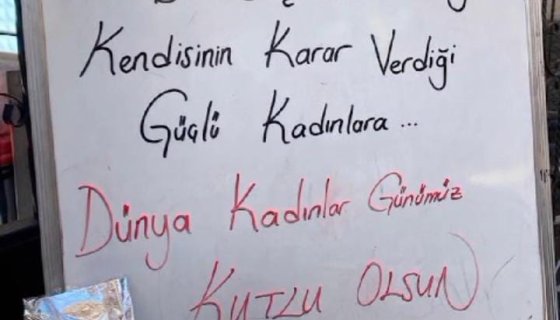 Kendisinin Karar Verdiği
Güçlü Kadınlara...
Dünya Kadınlar Günümüz
KUTLU OLSUN